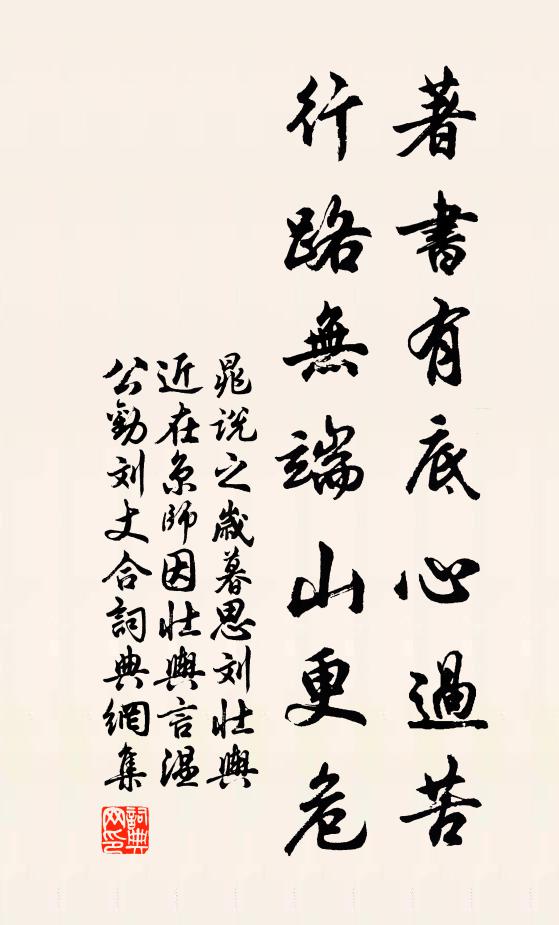 著書有底心過苦
行路無端山更危
晁說之歲暮思刘壯輿
近在京師因壯輿言温
公勸刘丈合詞典網集
詞典网印